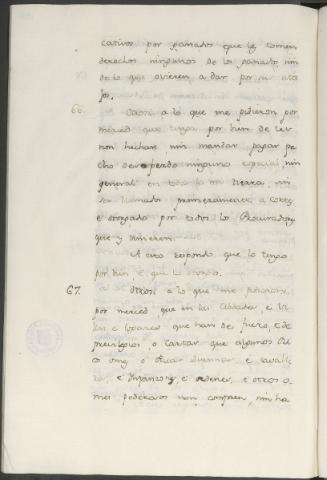 cativos por ganados que les tomen
derechos ningunos de los ganados nin
de lo que ovieren a dar por
66. Otrosi a lo que me pidieron por
merced que tenga por bien de les
non hechar nin mandar pagar pe
cho desaforado ninguno especial, nin
general en toda la mi tierra, sin
ser llamados primeramente a cortes
e otorgado por todos los Procuradores
que y vinieren.
A esto respondo que lo tengo
por bien, e que lo otorgo.
67. Otrosi a lo que me pidieron
por merced que en las Cibdades, e Vi
llas e logares que han de fuero, e de
previlegios, o cartas que algunos Ri
cos omes, o Ricas duennas, e cavalle
ros, e Infanzones, e ordenes, e otros o
mes poderosos non compren, nin ha